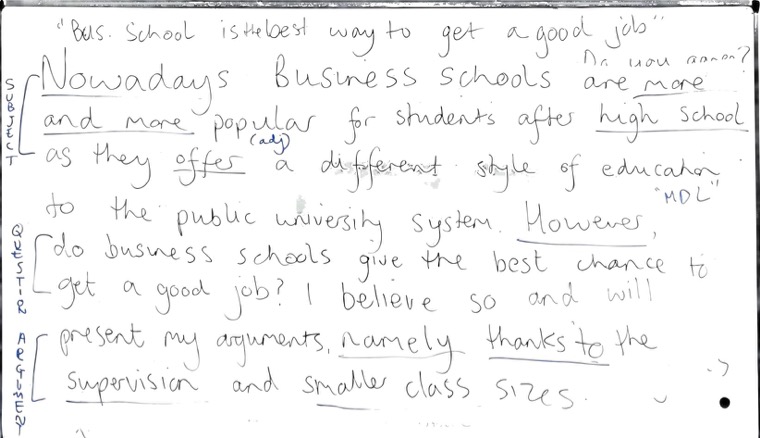 "Bus. School is the best way to get a good job"
Do you agree?
SUBJECT
Nowadays Business schools are more
and more popular for students after high school
(adj)
as they offer a different style of education
"MDL"
to the public university system. However,
QUESTION
do business schools give the best chance to
get a good job? I believe so and will
ARGUMENT
present my arguments, namely thanks to the
supervision and smaller class sizes.